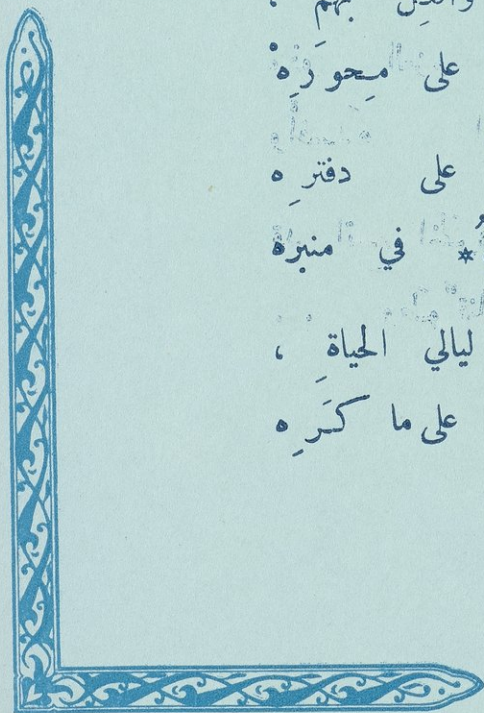 بهم ،
على مِحوَرِهْ
على دفترِه
* في منبرِه
ليالي الحياةِ ،
على ما كَرِه